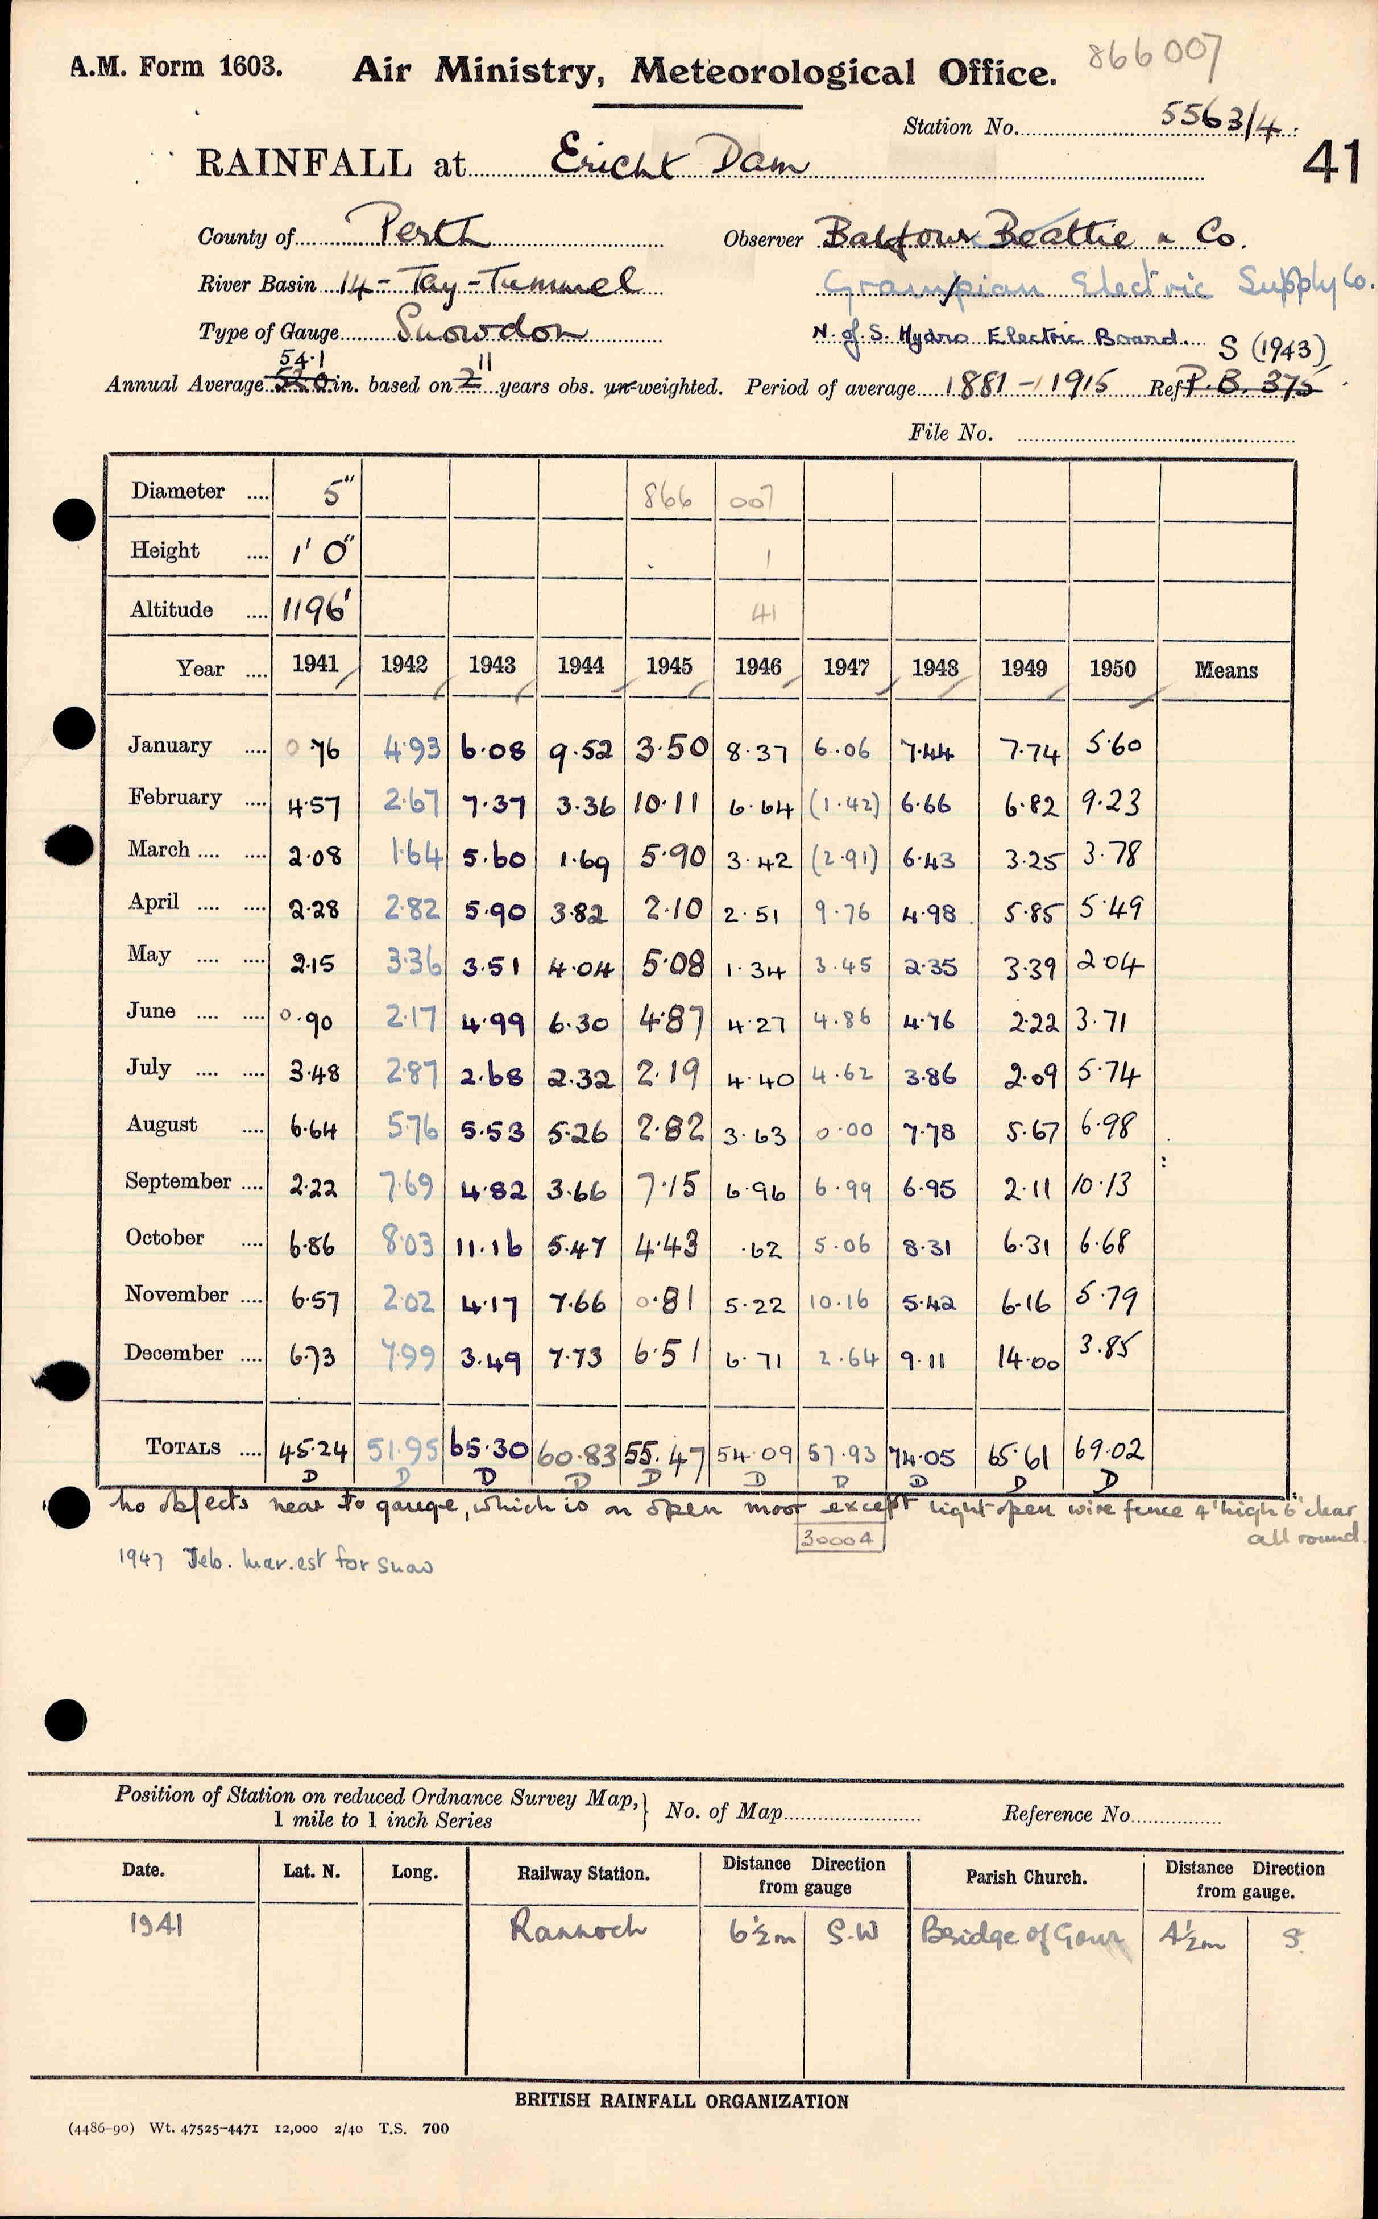 A.M. Form 1603. Air Ministry, Meteorological Office. 866007
Station No. 5563/4
41
RAINFALL at Ericht Dam
County of Perth Observer Balfour Beattie & Co.
River Basin 14 - Tay - Tummel Grampian Electric Supply Co.
Type of Gauge Snowdon N. of S. Hydro Electric Board. S (1943)
54.1 11
Annual Average in. based on 2 years obs. un-weighted. Period of average 1881 - 1915 Ref P.B. 375
File No.
Diameter .... 5" 866 007
Height .... 1' 0" 1
Altitude .... 1196' 41
Year .... 1941 1942 1943 1944 1945 1946 1947 1948 1949 1950 Means
January .... 0.76 4.93 6.08 9.52 3.50 8.37 6.06 7.44 7.74 5.60
February .... 4.57 2.67 7.37 3.36 10.11 6.64 (1.42) 6.66 6.82 9.23
March .... .... 2.08 1.64 5.60 1.69 5.90 3.42 (2.91) 6.43 3.25 3.78
April .... .... 2.28 2.82 5.90 3.82 2.10 2.51 9.76 4.98 5.85 5.49
May .... .... 2.15 3.36 3.51 4.04 5.08 1.34 3.45 2.35 3.39 2.04
June .... .... 0.90 2.17 4.99 6.30 4.87 4.27 4.86 4.76 2.22 3.71
July .... .... 3.48 2.87 2.68 2.32 2.19 4.40 4.62 3.86 2.09 5.74
August .... 6.64 5.76 5.53 5.26 2.82 3.63 0.00 7.78 5.67 6.98
September .... 2.22 7.69 4.82 3.66 7.15 6.96 6.99 6.95 2.11 10.13
October .... 6.86 8.03 11.16 5.47 4.43 .62 5.06 8.31 6.31 6.68
November .... 6.57 2.02 4.17 7.66 0.81 5.22 10.16 5.42 6.16 5.79
December .... 6.73 7.99 3.49 7.73 6.51 6.71 2.64 9.11 14.00 3.85
TOTALS .... 45.24 51.95 65.30 60.83 55.47 54.09 57.93 74.05 65.61 69.02
D D D D D D D D D D
No objects near to gauge, which is on open moor except light open wire fence 4' high 6' clear
all round.
30004
1947 Feb. Mar. est for snow
Position of Station on reduced Ordnance Survey Map, } No. of Map Reference No.
1 mile to 1 inch Series
Date. Lat. N. Long. Railway Station. Distance Direction from gauge Parish Church. Distance Direction from gauge.
1941 Rannoch 6½m S.W Bridge of Gour 4½m S.
BRITISH RAINFALL ORGANIZATION
(4486-90) Wt. 47525-4471 12,000 2/40 T.S. 700